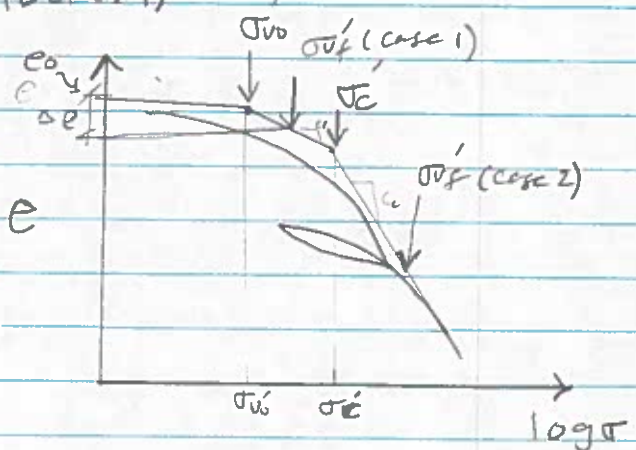 σvo
σ'vf (case 1)
eo
Δe
σ'c
σ'vf (case 2)
e
σ'vo
logσ